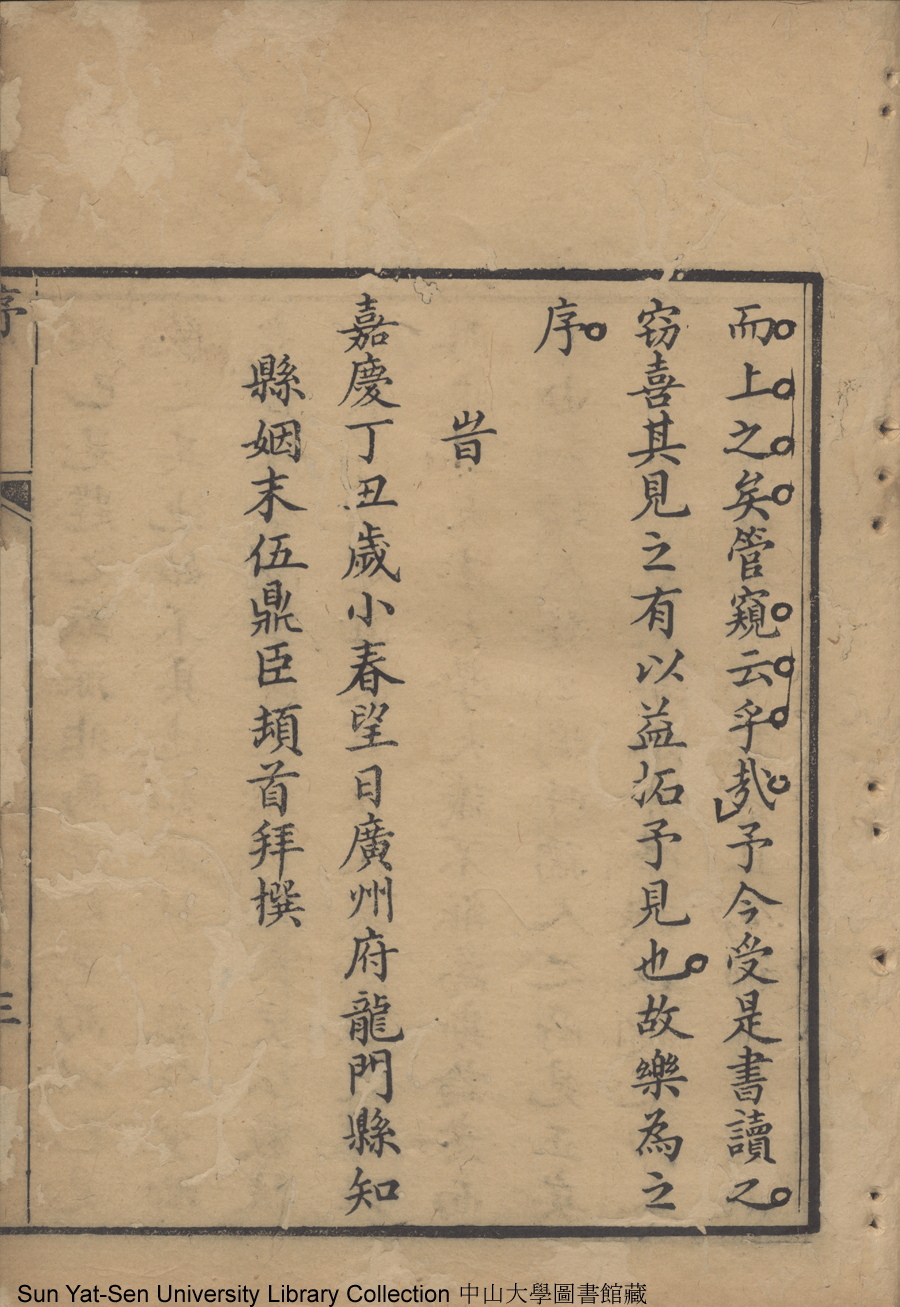 而上之矣管窺云乎哉予今受是書讀之
窃喜其見之有以益拓予見也故樂為之
序
旹
嘉慶丁丑歲小春望日廣州府龍門縣知
縣姻末伍鼎臣頓首拜撰
序
三
Sun Yat-Sen University Library Collection 中山大學圖書館藏